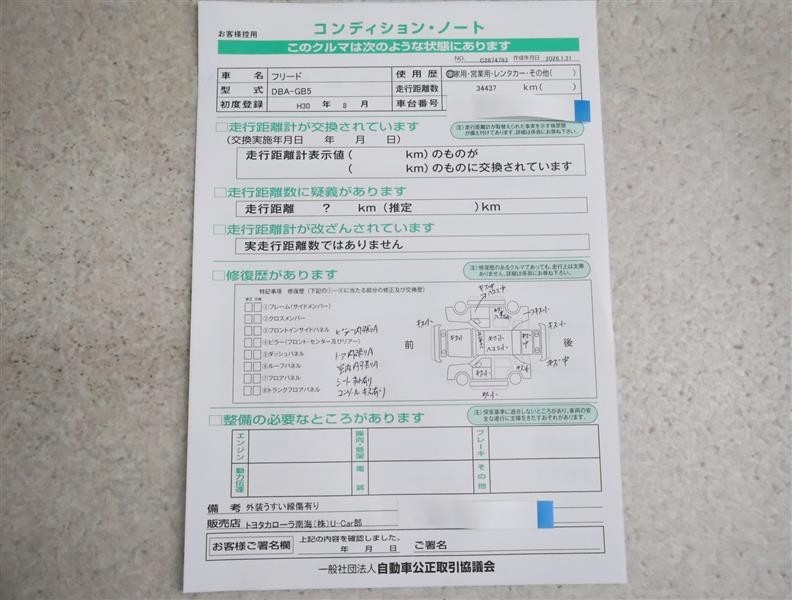 お客様控用
コンディション・ノート
このクルマは次のような状態にあります
NO. C2874793 作成年月日 2026.1.31
車名 フリード 使用歴 自家用・営業用・レンタカー・その他( )
型式 DBA-GB5 走行距離数 34437 km( )
初度登録 H30 年 8 月 車台番号
□走行距離計が交換されています
(交換実施年月日 年 月 日)
走行距離計表示値( km)のものが
( km)のものに交換されています
□走行距離数に疑義があります
走行距離 ? km(推定 )km
□走行距離計が改ざんされています
実走行距離数ではありません
□修復歴があります
注)修復歴のあるクルマであっても、走行上は支障
ありません。詳細は係員にお尋ね下さい。
特記事項 修復歴(下記の①~⑧に当たる部分の修正及び交換歴)
修正 交換
①フレーム(サイドメンバー)
②クロスメンバー
③フロントインサイドパネル
④ピラー(フロント・センター及びリアー)
⑤ダッシュパネル
⑥ルーフパネル
⑦フロアパネル
⑧トランクフロアパネル
前
後
キズ小
キズ中
□整備の必要なところがあります
注)保安基準に適合しないところがあり、車両の安
全な運行に支障をきたすおそれがあります。
エンジン
操向・懸架
ブレーキ
動力伝達
電装
その他
備考 外装うすい線傷有り
販売店 トヨタカローラ南海(株)U-Car部
お客様ご署名欄 上記の内容を確認しました。
年 月 日 ご署名
一般社団法人 自動車公正取引協議会